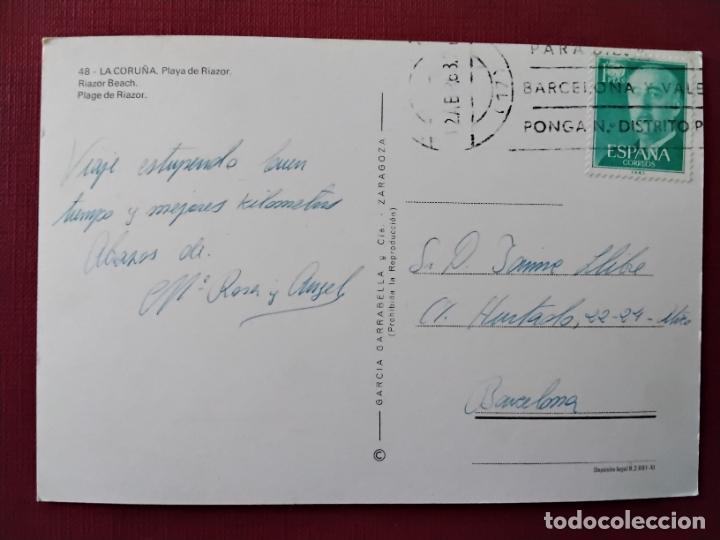 48 - LA CORUÑA. Playa de Riazor.
Riazor Beach.
Plage de Riazor.
Viaje estupendo buen
tiempo y mejores kilometros
Abrazos de.
Mª Rosa y Angel
© GARCIA GARRABELLA y Cía. - ZARAGOZA
(Prohibida la Reproducción)
PARA
BARCELONA Y VALE
PONGA N.º DISTRITO P
1 PTA
ESPAÑA
CORREOS
Sr. D. Jaime Llibre
Cl. Hurtado, 22-24-
Barcelona
Depósito legal B.
todocoleccion
todocoleccion.net